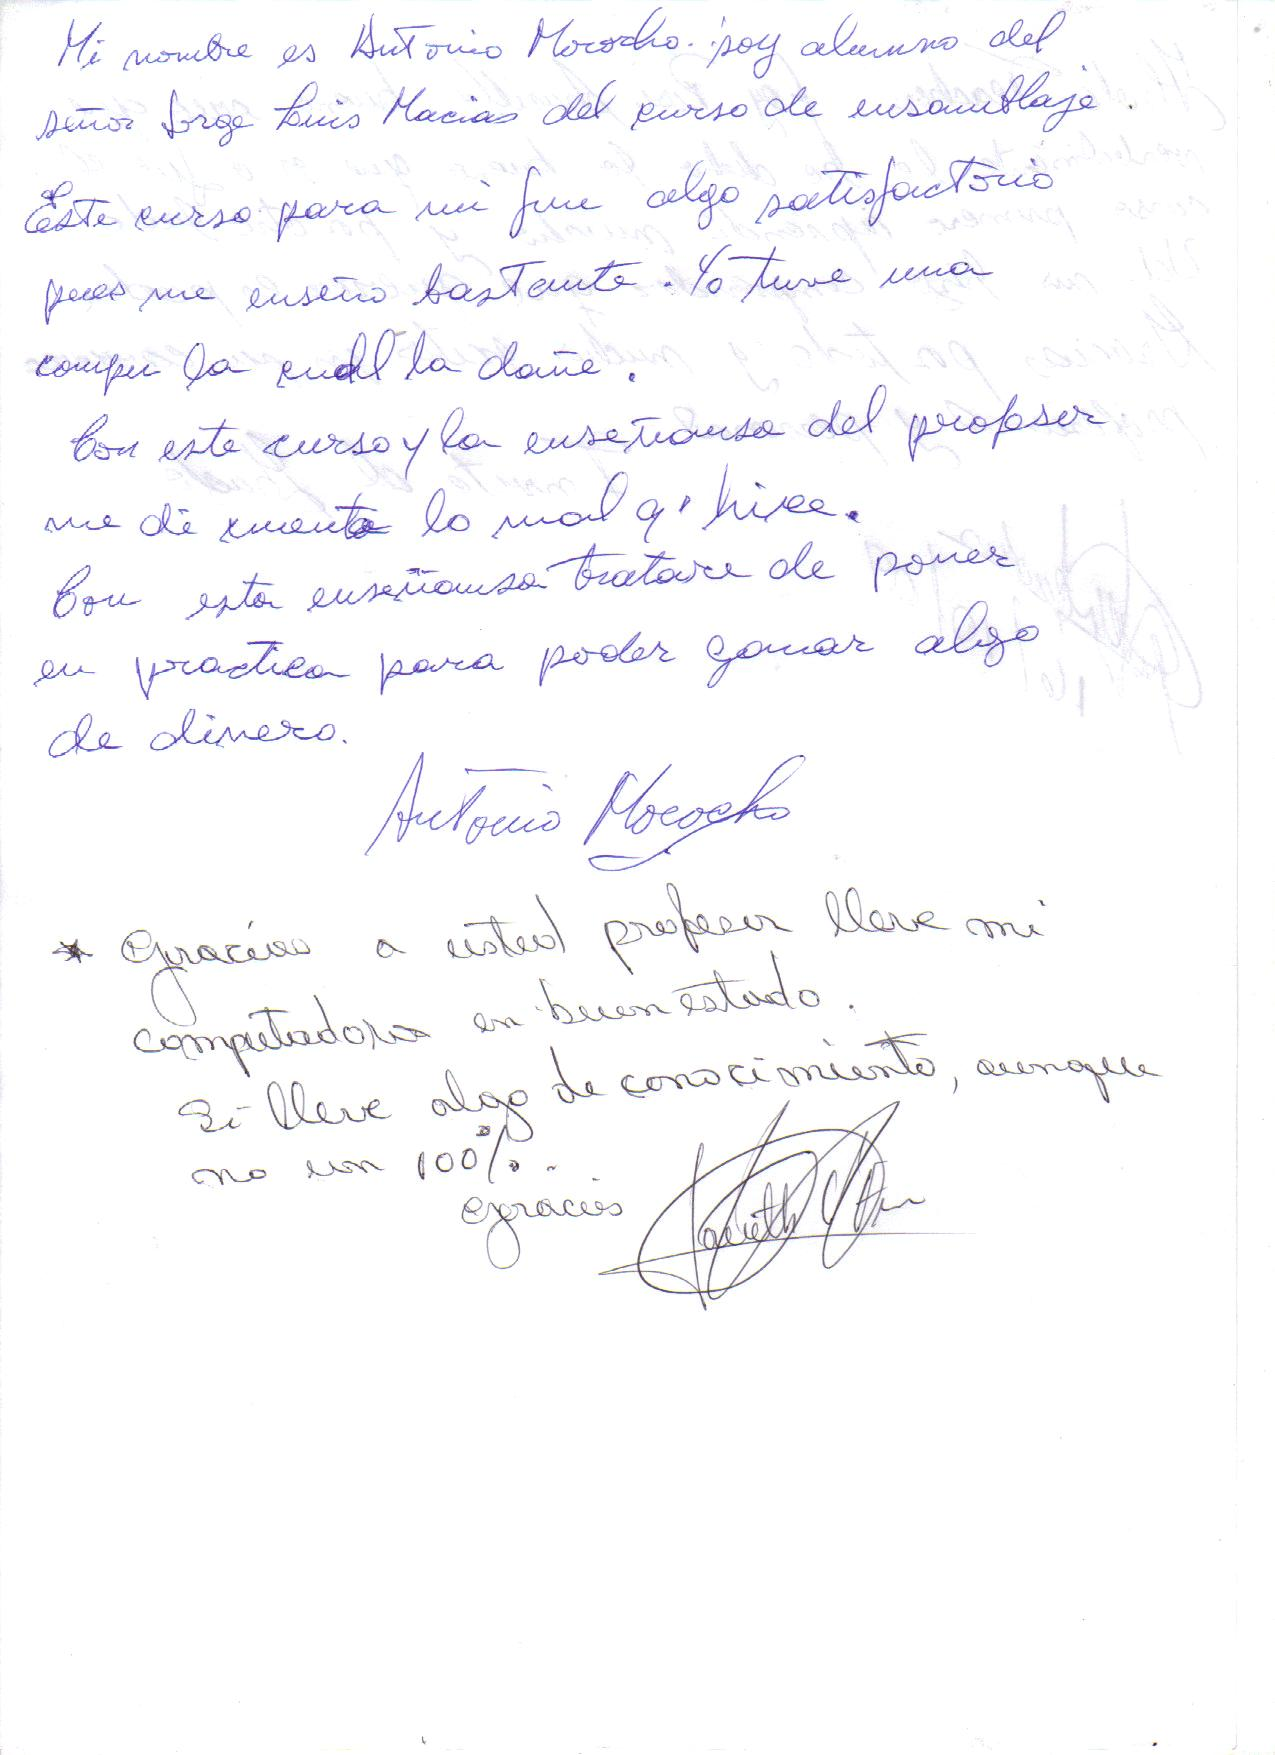 Mi nombre es Antonio Morocho. soy alumno del
señor Jorge Luis Macias del curso de ensamblaje.
Este curso para mi fue algo satisfactorio
pues me enseño bastante. Yo tuve una
compu la cual la dañe.
Con este curso y la enseñansa del profesor
me di cuenta lo mal q' hice.
Con esta enseñansa tratare de poner
en practica para poder ganar algo
de dinero.
Antonio Morocho
* Gracias a usted profesor lleve mi
computadora en buen estado.
Si lleve algo de conocimiento, aunque
no un 100%.
Gracias